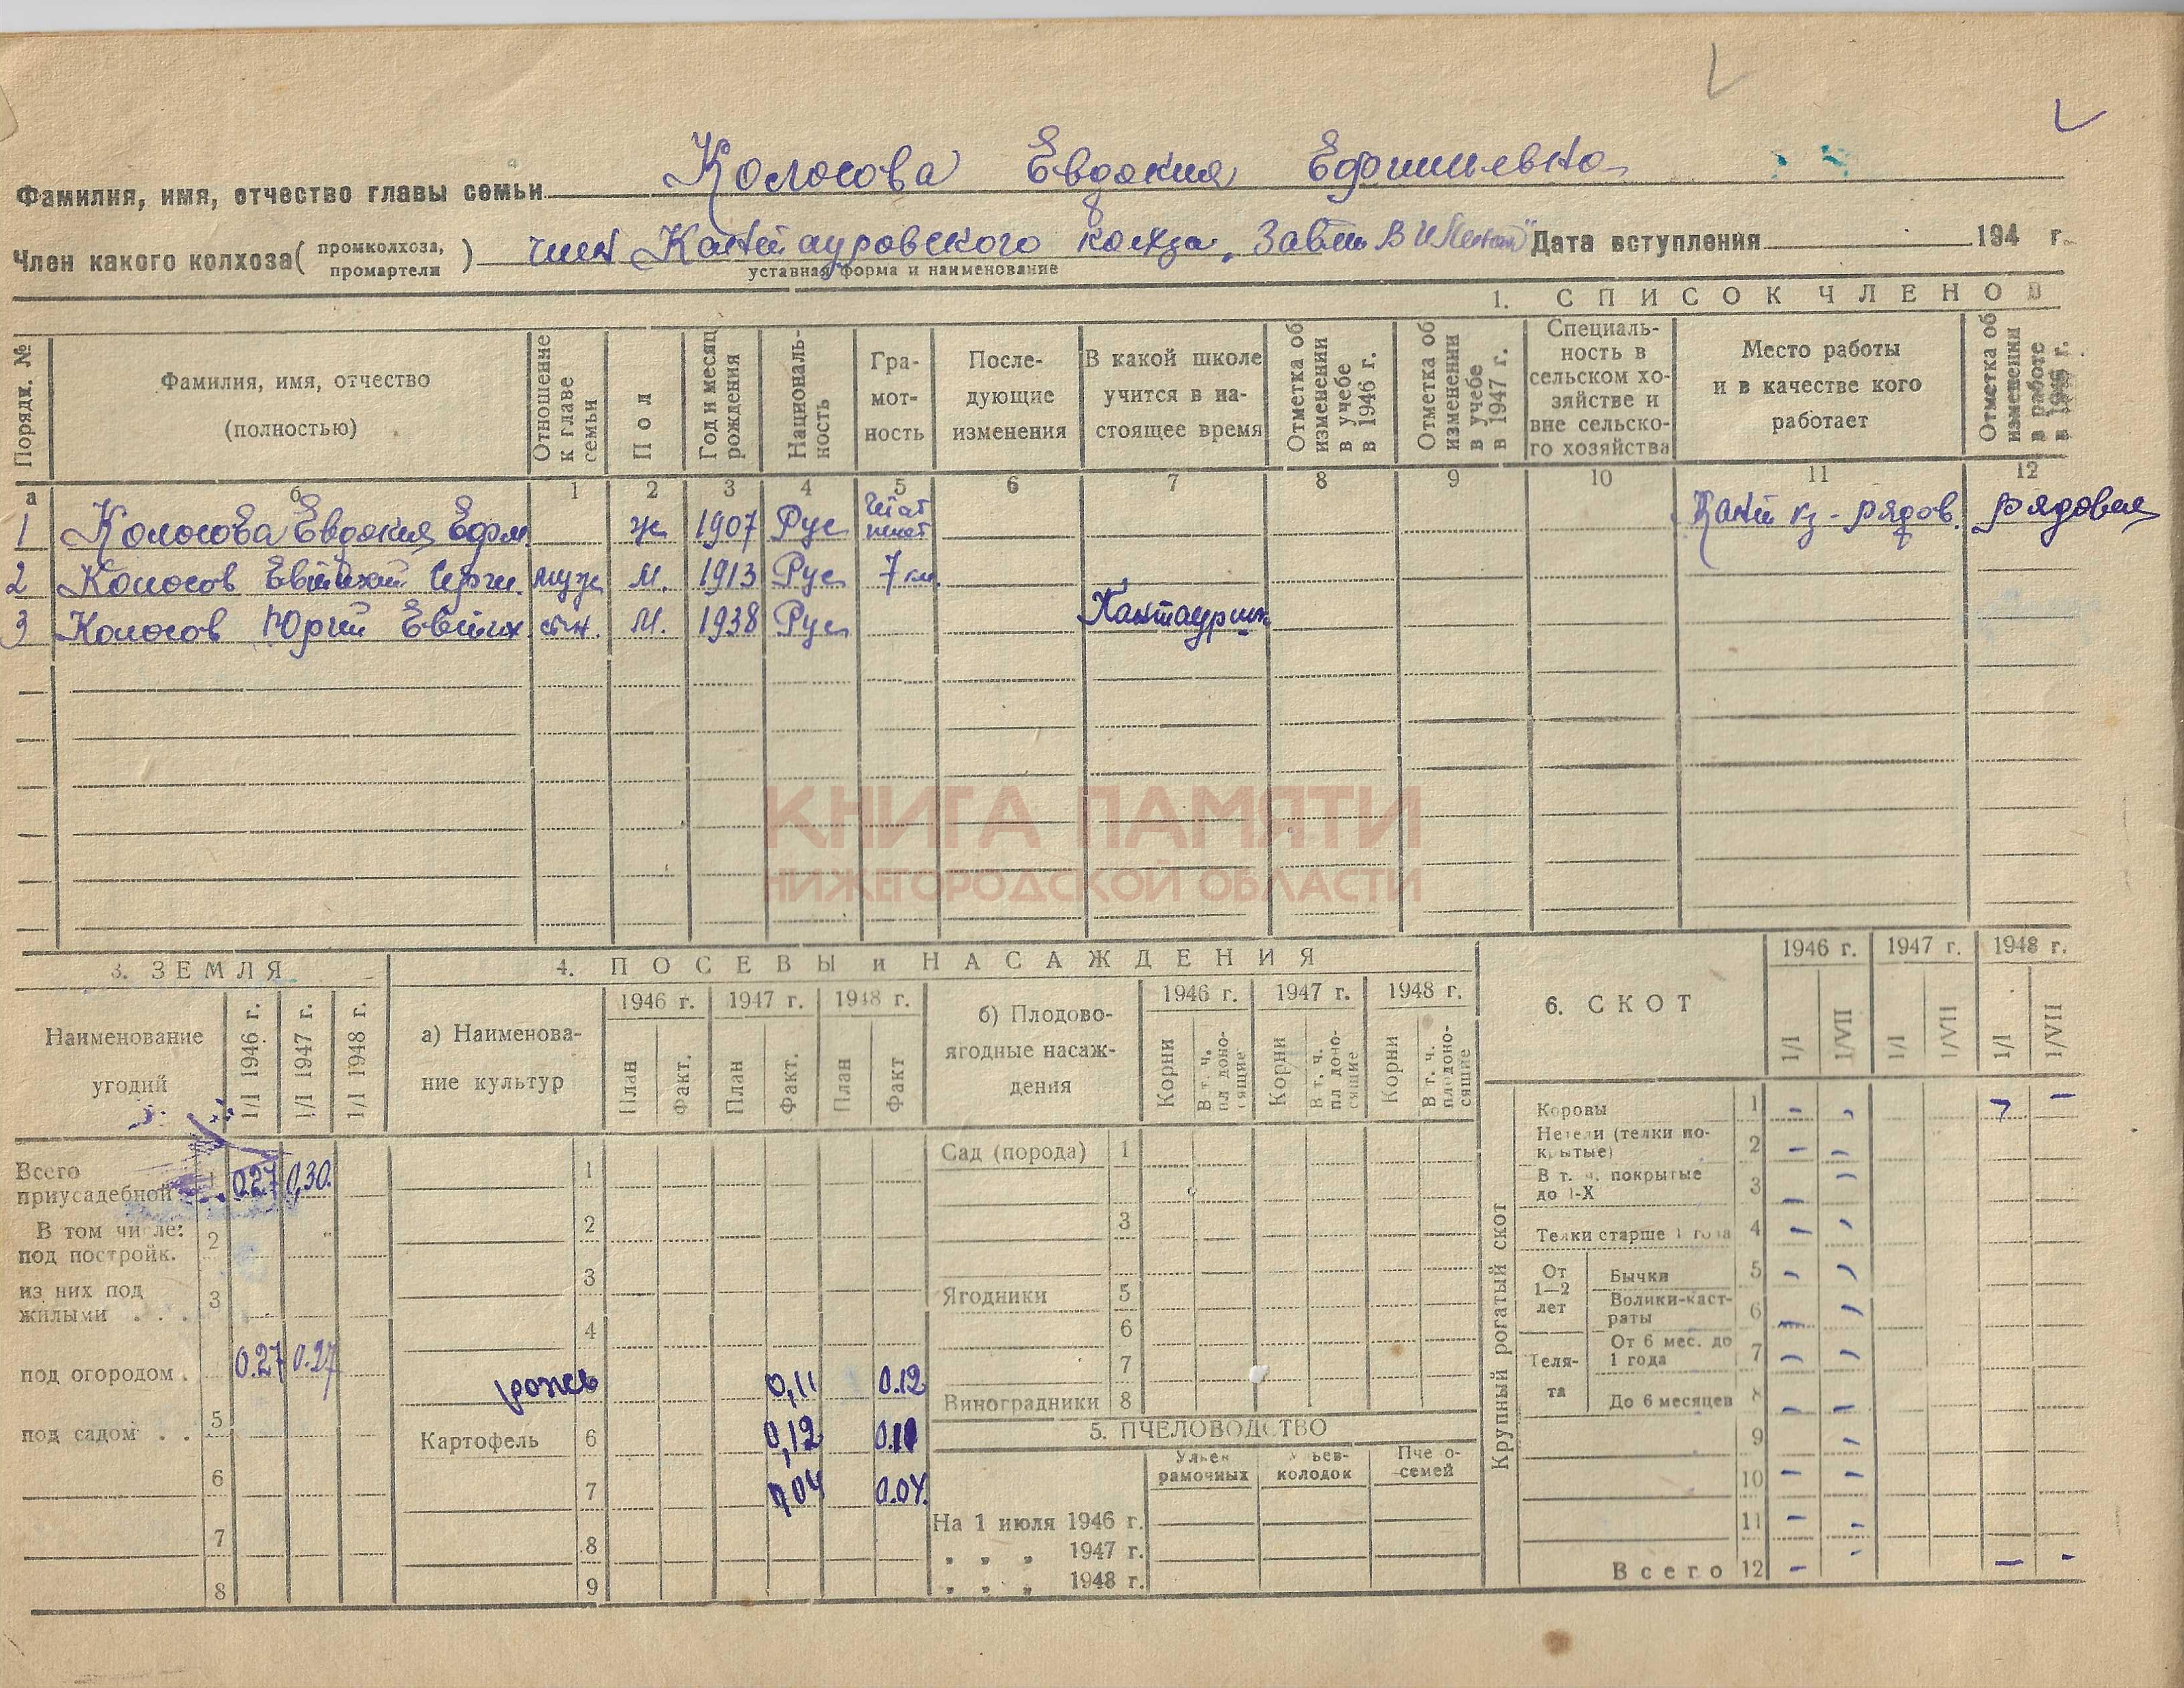 Фамилия, имя, отчество главы семьи Колосова Евдокия Ефимьевна
Член какого колхоза (промколхоза, промартели) член Кантауровского колхза, Завты В И Ленин" Дата вступления 194 г.
уставная форма и наименование
1. СПИСОК ЧЛЕНОВ
Порядк. № Фамилия, имя, отчество (полностью) Отношение к главе семьи Пол Год и месяц рождения Национальность Гра-мот-ность После-дующие изменения В какой школе учится в на-стоящее время Отметка об изменении в учебе в 1946 г. Отметка об изменении в учебе в 1947 г. Специаль-ность в сельском хо-зяйстве и вне сельско-го хозяйства Место работы и в качестве кого работает Отметка об изменении в работе в 1946 г.
а б 1 2 3 4 5 6 7 8 9 10 11 12
1 Колосова Евдокия Ефим. ж 1907 Рус Кант кз - рядов. рядовая
2 Колосов Евтихий Серги. муж М. 1913 Рус 7 кл.
3 Колосов Юрий Евтих сын. М. 1938 Рус Кантаур шк
КНИГА ПАМЯТИ
НИЖЕГОРОДСКОЙ ОБЛАСТИ
3. ЗЕМЛЯ
Наименование угодий 1/I 1946 г. 1/I 1947 г. 1/I 1948 г.
Всего приусадебной 1 0.27 0,30.
В том числе: под постройк. 2
из них под жилыми . . . 3
под огородом . 0.27 0.27
под садом . . 5
6
7
8
4. ПОСЕВЫ и НАСАЖДЕНИЯ
а) Наименова-ние культур 1946 г. 1947 г. 1948 г.
План Факт. План Факт. План Факт
1
2
3
4
рожь 0,11 0.12
Картофель 6 0,12 0.11
7 0,04 0.04.
8
9
б) Плодово-ягодные насаж-дения 1946 г. 1947 г. 1948 г.
Корни В т. ч. плодоно-сящие Корни В т. ч. плодоно-сящие Корни В т. ч. плодоно-сящие
Сад (порода) 1
3
Ягодники 5
6
7
Виноградники 8
5. ПЧЕЛОВОДСТВО
Ульев рамочных Ульев-колодок Пчело-семей
На 1 июля 1946 г.
„ „ „ 1947 г.
„ „ „ 1948 г.
6. СКОТ 1946 г. 1947 г. 1948 г.
1/I 1/VII 1/I 1/VII 1/I 1/VII
Крупный рогатый скот
Коровы 1 - - - -
Нетели (телки по-крытые) 2 - -
В т. ч. покрытые до 1-X 3 - -
Телки старше 1 года 4 - -
От 1—2 лет Бычки 5 - -
Волики-каст-раты 6 - -
Теля-та От 6 мес. до 1 года 7 - -
До 6 месяцев 8 - -
9 -
10 - -
11 - -
Всего 12 - - - -